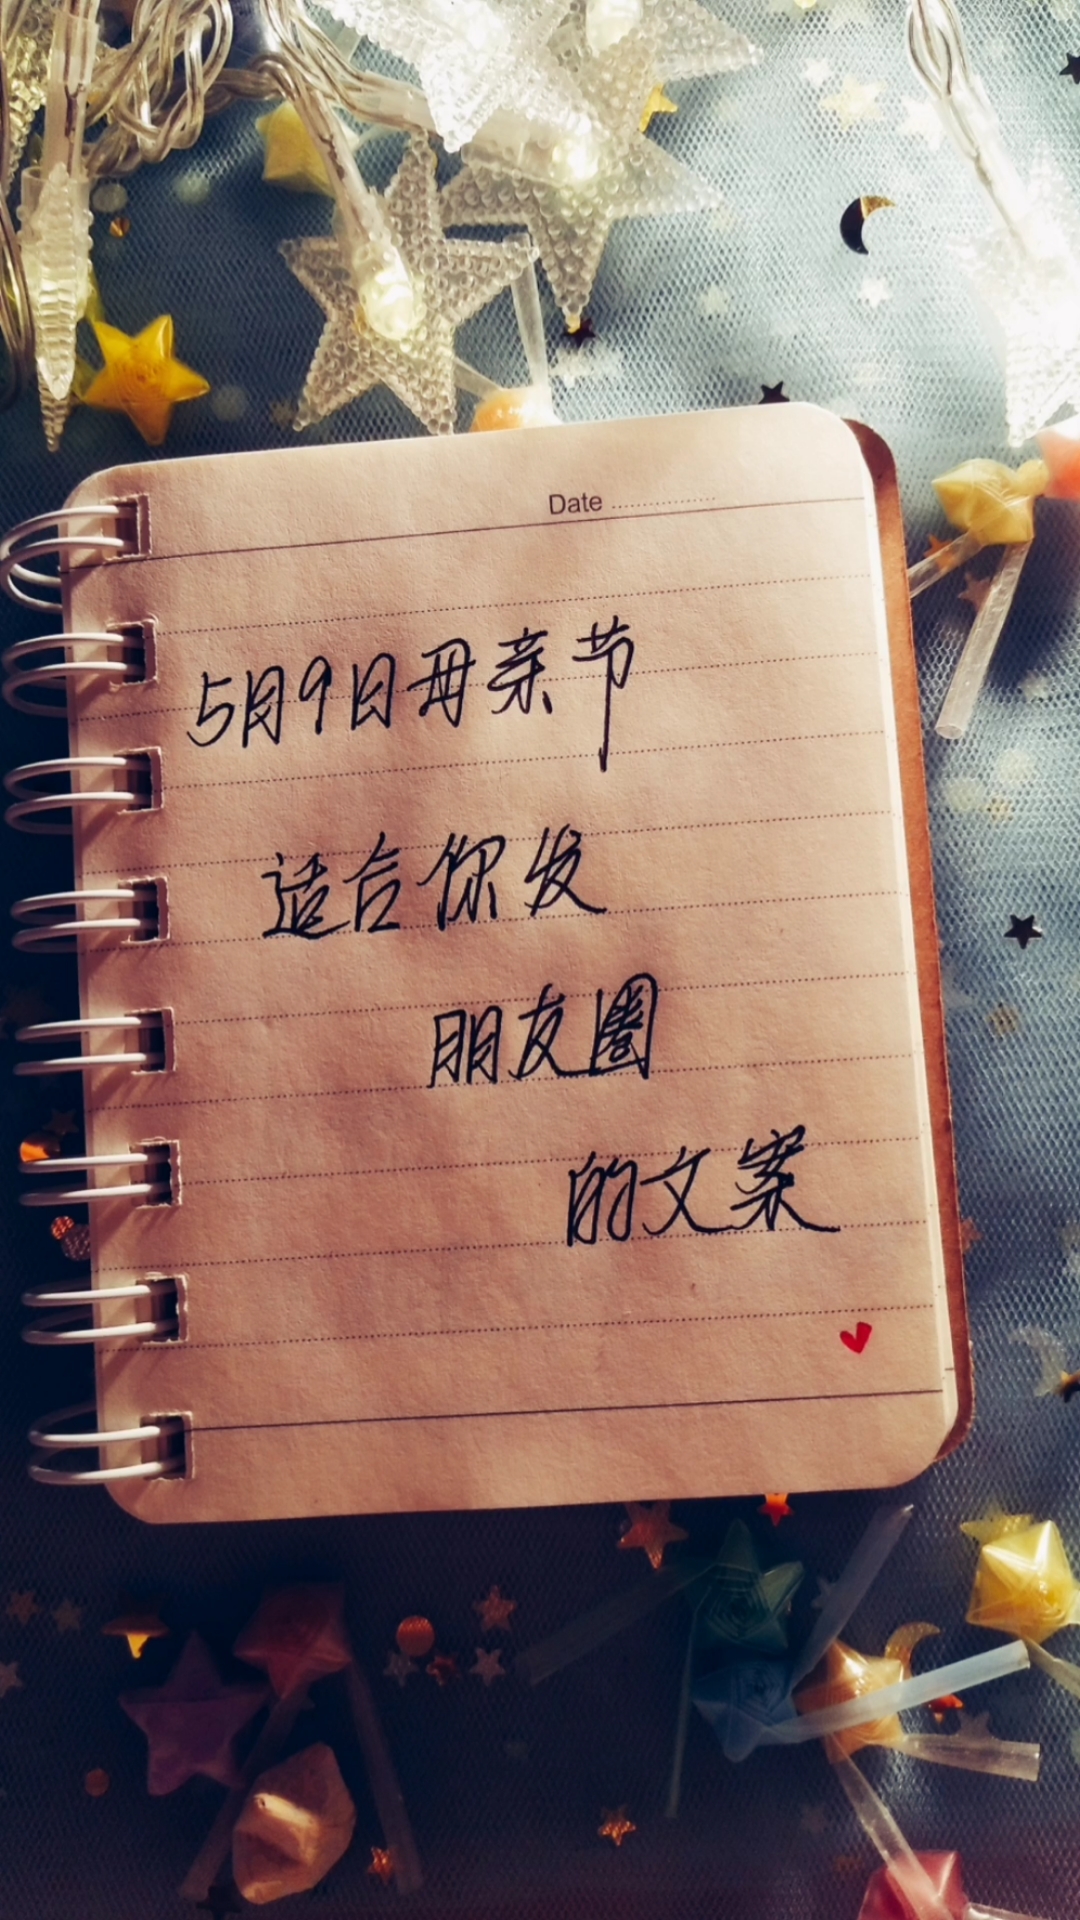 Date
5月9日母亲节
适合你发
朋友圈
的文案